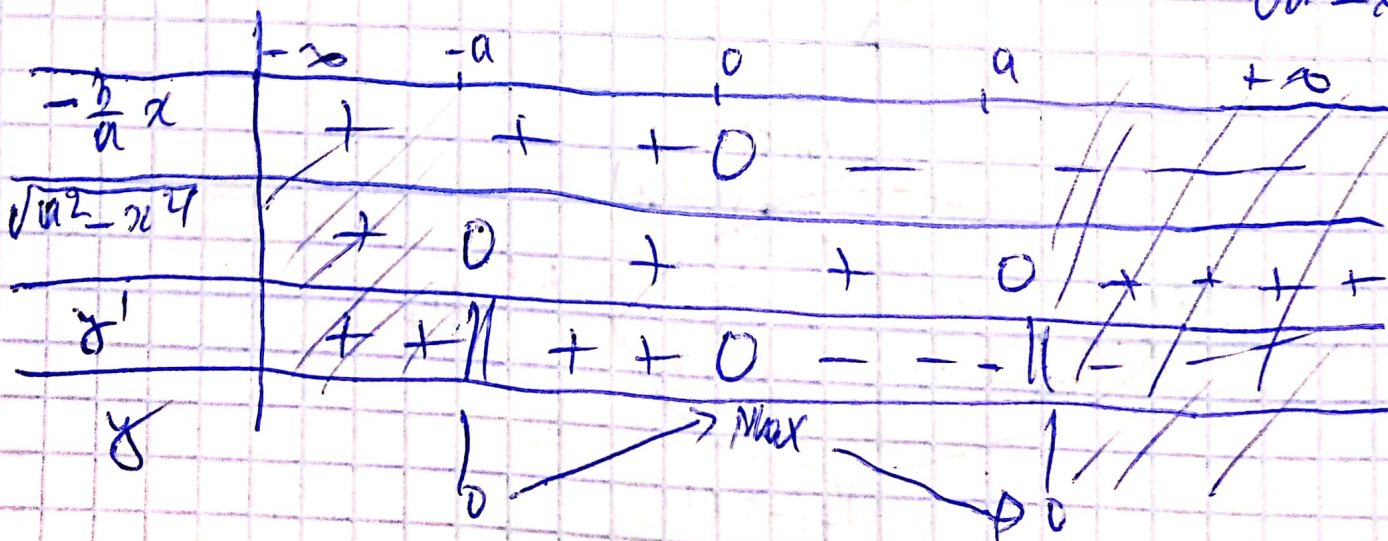 -∞ -a 0 a +∞
-b/a x + + + 0 — - —
√a²-x² + 0 + + 0 + + + +
y' + + || + + 0 - - - || - -
y 0 Max 0